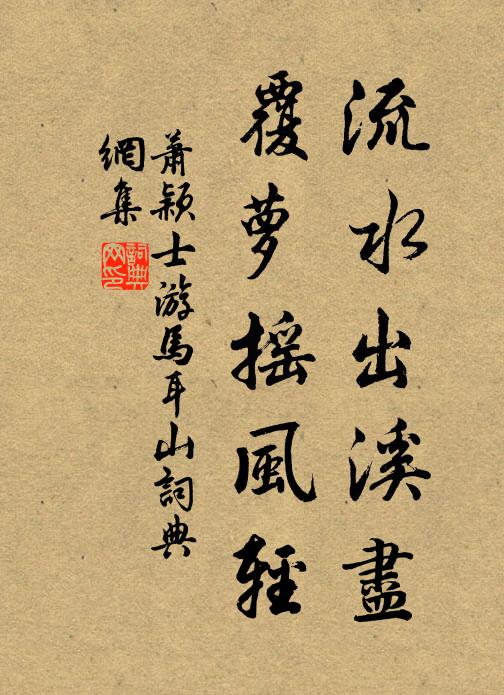 流水出溪盡
覆萝搖風輕
蕭穎士游馬耳山詞典
網集
詞典网印